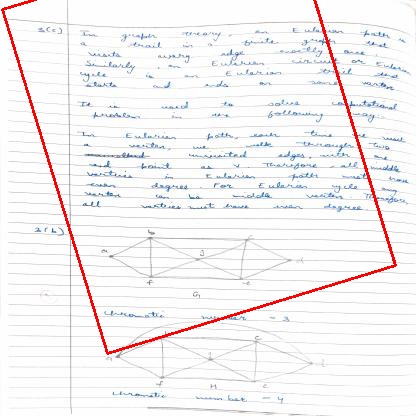 3(c) In graph theory, an Eulerian path is
a trail in a finite graph that
visits every edge exactly once.
Similarly, an Eulerian circuit or Eulerian
cycle is an Eulerian trail that
starts and ends on same vertex
It is used to solve computational
problem in the following way:-
In Eulerian path, each time we visit
a vertex, we walk through two
unvisited edges, with one
end point as v Therefore all middle
vertices in Eulerian path must have
even degree. For Eulerian cycle any
vertex can be middle vertex Therefore
all vertices must have even degree
3(b)
a b c d
g
f e
G
chromatic number = 3
a c d
f e
H
chromatic number = 4